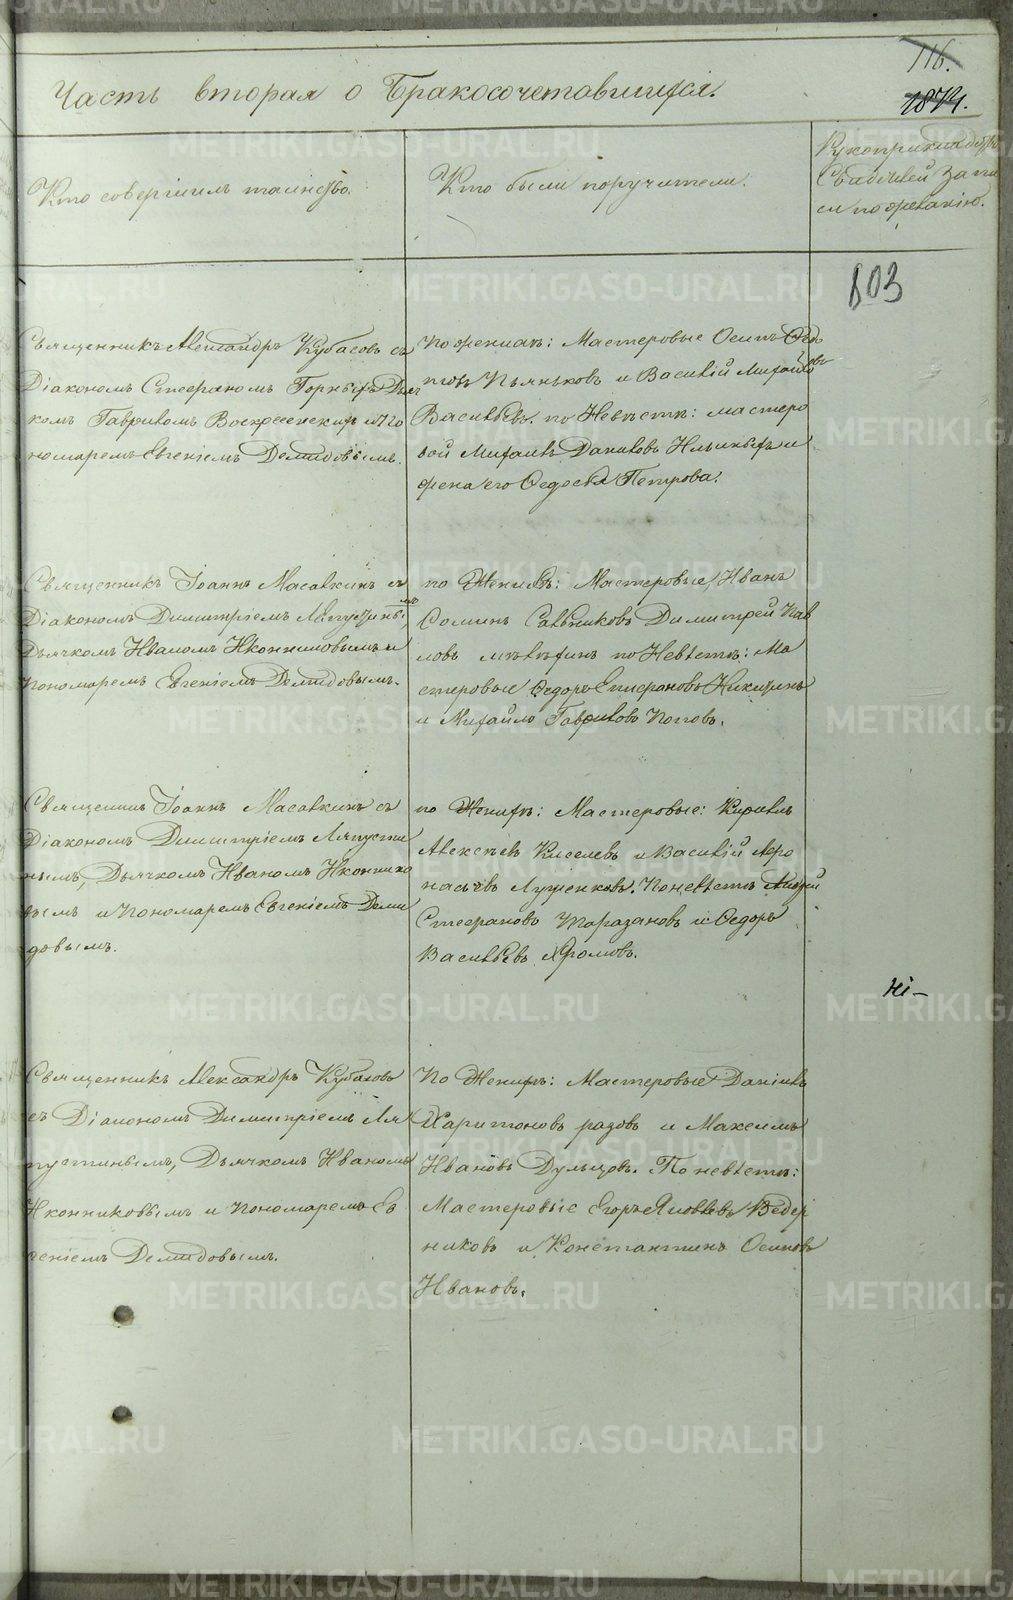 116.
Часть вторая о Бракосочетавшихся.
1874.
Кто совершилъ таинство.
Кто были поручители.
Рукоприкладство
Свидѣтелей запи
си по желанію.
803
Священникъ Александръ Кубасовъ съ
Діакономъ Стефаномъ Горныхъ Дьяч
комъ Гавриломъ Воскресенскимъ и По
номаремъ Евгеніемъ Демидовымъ.
По женихѣ: Мастеровые Осипъ
Пьянковъ и Василій Михайловъ
Васильевъ. по Невѣстѣ: мастеро
вой Михаилъ Даниловъ Ильиныхъ и
жена его Ѳедосья Петрова.
Священникъ Іоаннъ Масалкинъ съ
Діакономъ Димитріемъ Ляпустинымъ,
Дьячкомъ Иваномъ Иконниковымъ и
Пономаремъ Евгеніемъ Демидовымъ.
по Женихѣ: Мастеровые, Иванъ
Сальниковъ Димитрей Пав
ловъ по Невѣстѣ: Ма
стеровые Ѳедоръ Епифановъ Никитинъ
и Михайло Гавриловъ Поповъ.
Священникъ Іоаннъ Масалкинъ съ
Діакономъ Димитріемъ Ляпусти
нымъ, Дьячкомъ Иваномъ Иконнико
вымъ и Пономаремъ Евгеніемъ Деми
довымъ.
по Женихѣ: Мастеровые: Кирилъ
Алексѣевъ Киселевъ и Василій Афо
насьевъ Лушенковъ. По невѣстѣ
Стефановъ Таразановъ и Ѳедоръ
Васильевъ Хромовъ.
Священникъ Александръ Кубасовъ
съ Діакономъ Димитріемъ Ля
пустинымъ, Дьячкомъ Иваномъ
Иконниковымъ и Пономаремъ Ев
геніемъ Демидовымъ.
По Женихѣ: Мастеровые Даніилъ
Харитоновъ и Максимъ
Ивановъ Дульцовъ. По невѣстѣ:
Мастеровые Егоръ Яковлевъ Ведер
никовъ и Константинъ Осиповъ
Ивановъ.
METRIKI.GASO-URAL.RU